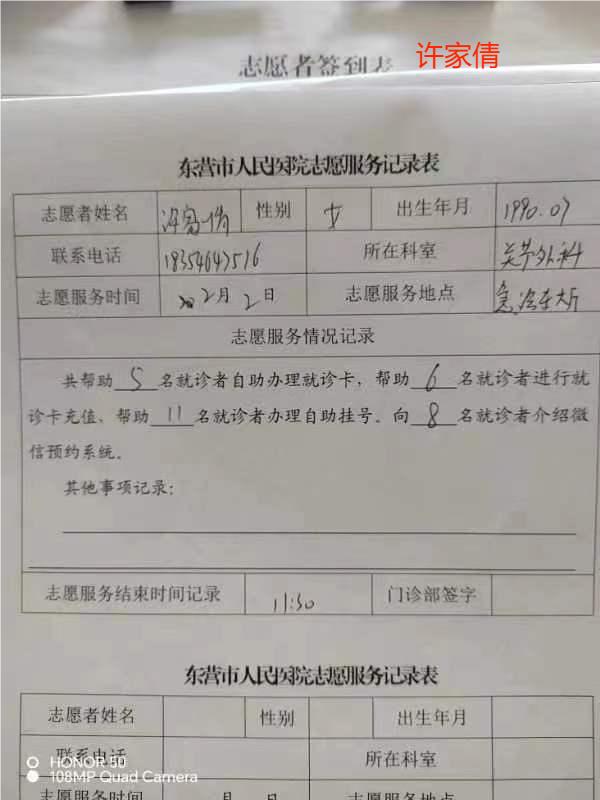 志愿者签到表 许家倩
东营市人民医院志愿服务记录表
志愿者姓名 许家倩 性别 女 出生年月 1990.07
联系电话 18354647516 所在科室 关节外科
志愿服务时间 2月2日 志愿服务地点 急诊大厅
志愿服务情况记录
共帮助 5 名就诊者自助办理就诊卡，帮助 6 名就诊者进行就
诊卡充值、帮助 11 名就诊者办理自助挂号。向 8 名就诊者介绍微
信预约系统。
其他事项记录：
志愿服务结束时间记录 11:30 门诊部签字
东营市人民医院志愿服务记录表
志愿者姓名 性别 出生年月
联系电话 所在科室
HONOR 50
志愿服务时间 月 日 志愿服务地点
108MP Quad Camera